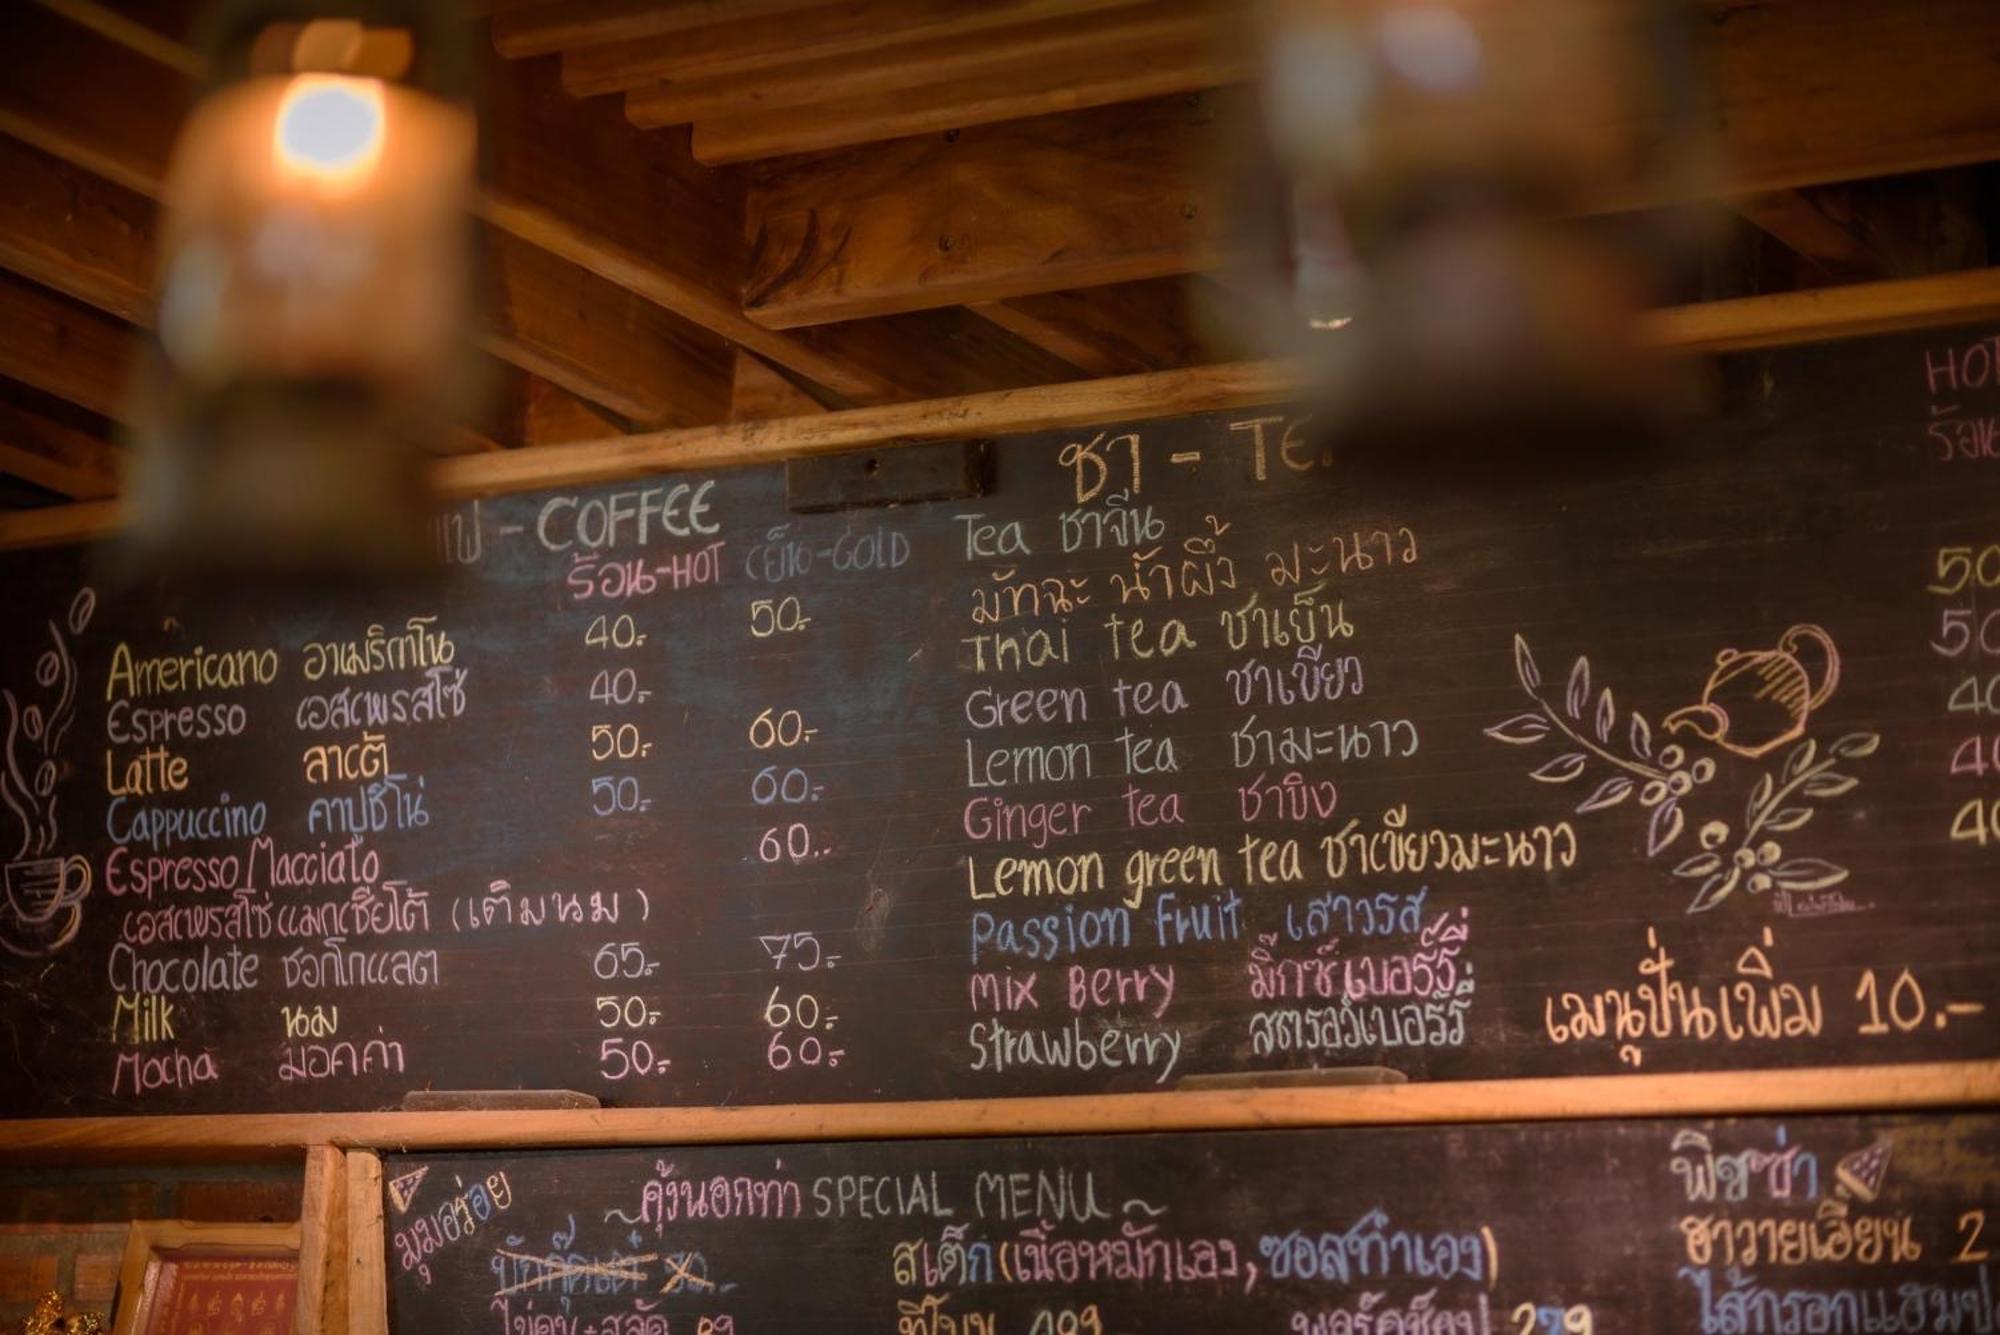 แฟ - COFFEE
ร้อน-HOT เย็น-COLD
Americano อาเมริกาโน 40.- 50.-
Espresso เอสเพรสโซ่ 40.-
Latte ลาเต้ 50.- 60.-
Cappuccino คาปูชิโน่ 50.- 60.-
Espresso Macciato 60.-
เอสเพรสโซ่แมกเชียโต้ (เติมนม)
Chocolate ชอกโกแลต 65.- 75.-
Milk นม 50.- 60.-
Mocha มอคค่า 50.- 60.-
ชา - TE
HOT
ร้อน
Tea ชาจีน
มัทฉะ น้ำผึ้ง มะนาว
Thai tea ชาเย็น 50
Green tea ชาเขียว 50
Lemon tea ชามะนาว 40
Ginger tea ชาขิง 40
Lemon green tea ชาเขียวมะนาว 40
Passion Fruit เสาวรส
Mix Berry มิ๊กซ์เบอร์รี่
Strawberry สตรอว์เบอร์รี่
เมนูปั่นเพิ่ม 10.-
มุมอร่อย
~คุ้งนอกท่า SPECIAL MENU~
สเต็ก (เนื้อหมักเอง, ซอสทำเอง)
ทีโบน 499 พอร์คช็อป 279
พิซซ่า
ฮาวายเอี้ยน 2
ไส้กรอกแฮม